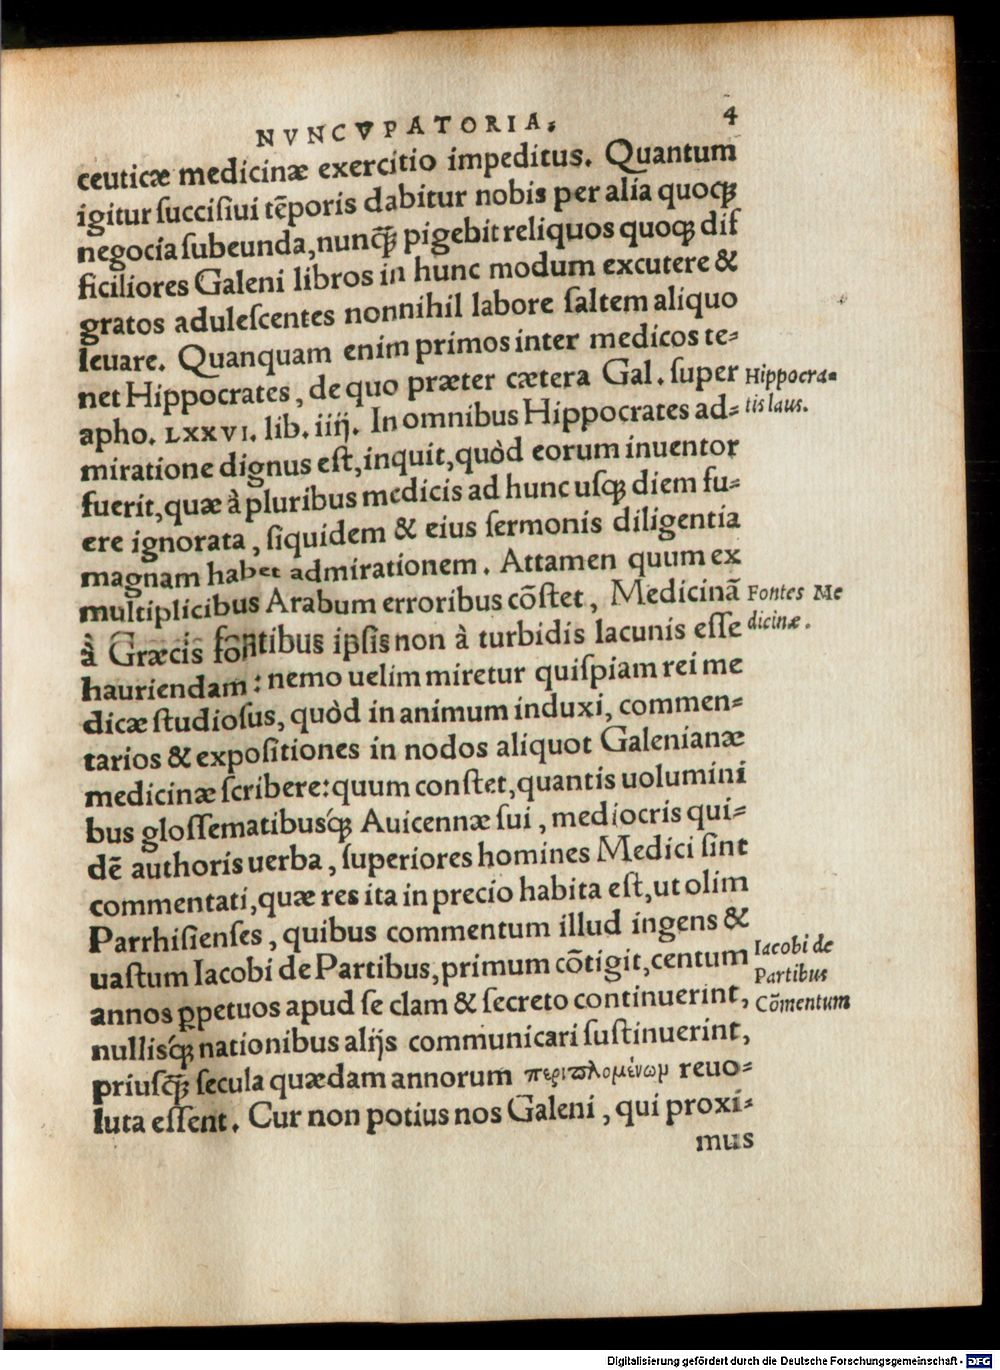 NVNCVPATORIA.
4
ceuticæ medicinæ exercitio impeditus. Quantum
igitur ſucciſiui tẽporis dabitur nobis per alia quoqꝫ
negocia ſubeunda, nunqꝫ̃ pigebit reliquos quoqꝫ dif
ficiliores Galeni libros in hunc modum excutere &
gratos aduleſcentes nonnihil labore ſaltem aliquo
leuare. Quanquam enim primos inter medicos te-
net Hippocrates, de quo præter cætera Gal. ſuper
apho. LXXVI. lib. iiij. In omnibus Hippocrates ad-
miratione dignus eſt, inquit, quòd eorum inuentor
fuerit, quæ à pluribus medicis ad hunc uſqꝫ diem fu-
ere ignorata, ſiquidem & eius ſermonis diligentia
magnam habet admirationem. Attamen quum ex
multiplicibus Arabum erroribus cõſtet, Medicinã
à Græcis fontibus ipſis non à turbidis lacunis eſſe
hauriendam: nemo uelim miretur quiſpiam rei me
dicæ ſtudioſus, quòd in animum induxi, commen-
tarios & expoſitiones in nodos aliquot Galenianæ
medicinæ ſcribere: quum conſtet, quantis uolumini
bus gloſſematibusqꝫ́ Auicennæ ſui, mediocris qui-
dẽ authoris uerba, ſuperiores homines Medici ſint
commentati, quæ res ita in precio habita eſt, ut olim
Parrhiſienſes, quibus commentum illud ingens &
uaſtum Iacobi de Partibus, primum cõtigit, centum
annos ꝑpetuos apud ſe clam & ſecreto continuerint,
nullisqꝫ́ nationibus alijs communicari ſuſtinuerint,
priuſqꝫ̃ ſecula quædam annorum περιπλομένωμ reuo-
luta eſſent. Cur non potius nos Galeni, qui proxi-
mus
Hippocra-
tis laus.
Fontes Me
dicinæ.
Iacobi de
Partibus
Cõmentum
Digitalisierung gefördert durch die Deutsche Forschungsgemeinschaft - DFG